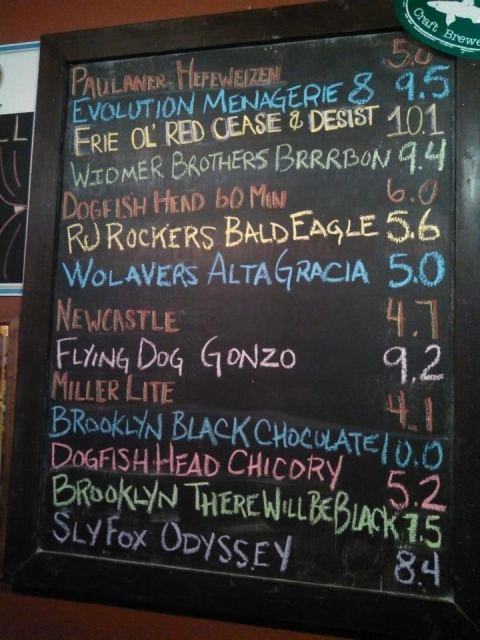 Craft Brewe
PAULANER HEFEWEIZEN 5.0
EVOLUTION MENAGERIE 8 9.5
ERIE OL' RED CEASE & DESIST 10.1
WIDMER BROTHERS BRRRBON 9.4
DOGFISH HEAD 60 MIN 6.0
RJ ROCKERS BALD EAGLE 5.6
WOLAVERS ALTA GRACIA 5.0
NEWCASTLE 4.7
FLYING DOG GONZO 9.2
MILLER LITE 4.1
BROOKLYN BLACK CHOCOLATE 10.0
DOGFISH HEAD CHICORY 5.2
BROOKLYN THERE WILL BE BLACK 7.5
SLY FOX ODYSSEY 8.4